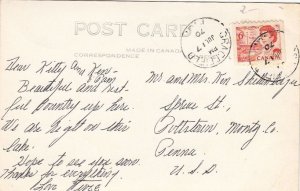 2-
POST CARD
MADE IN CANADA
CORRESPONDENCE
PM
JUL 17
70
6
CANADA
Dear Kitty and Ken -
Beautiful and rest-
ful Country up here.
We are
lake.
Hope to see you soon.
Thanks for everything.
Love
Mr and Mrs Ken
Spruce St,
Pottstown, Montg. Co.
Penna.
U.S.A